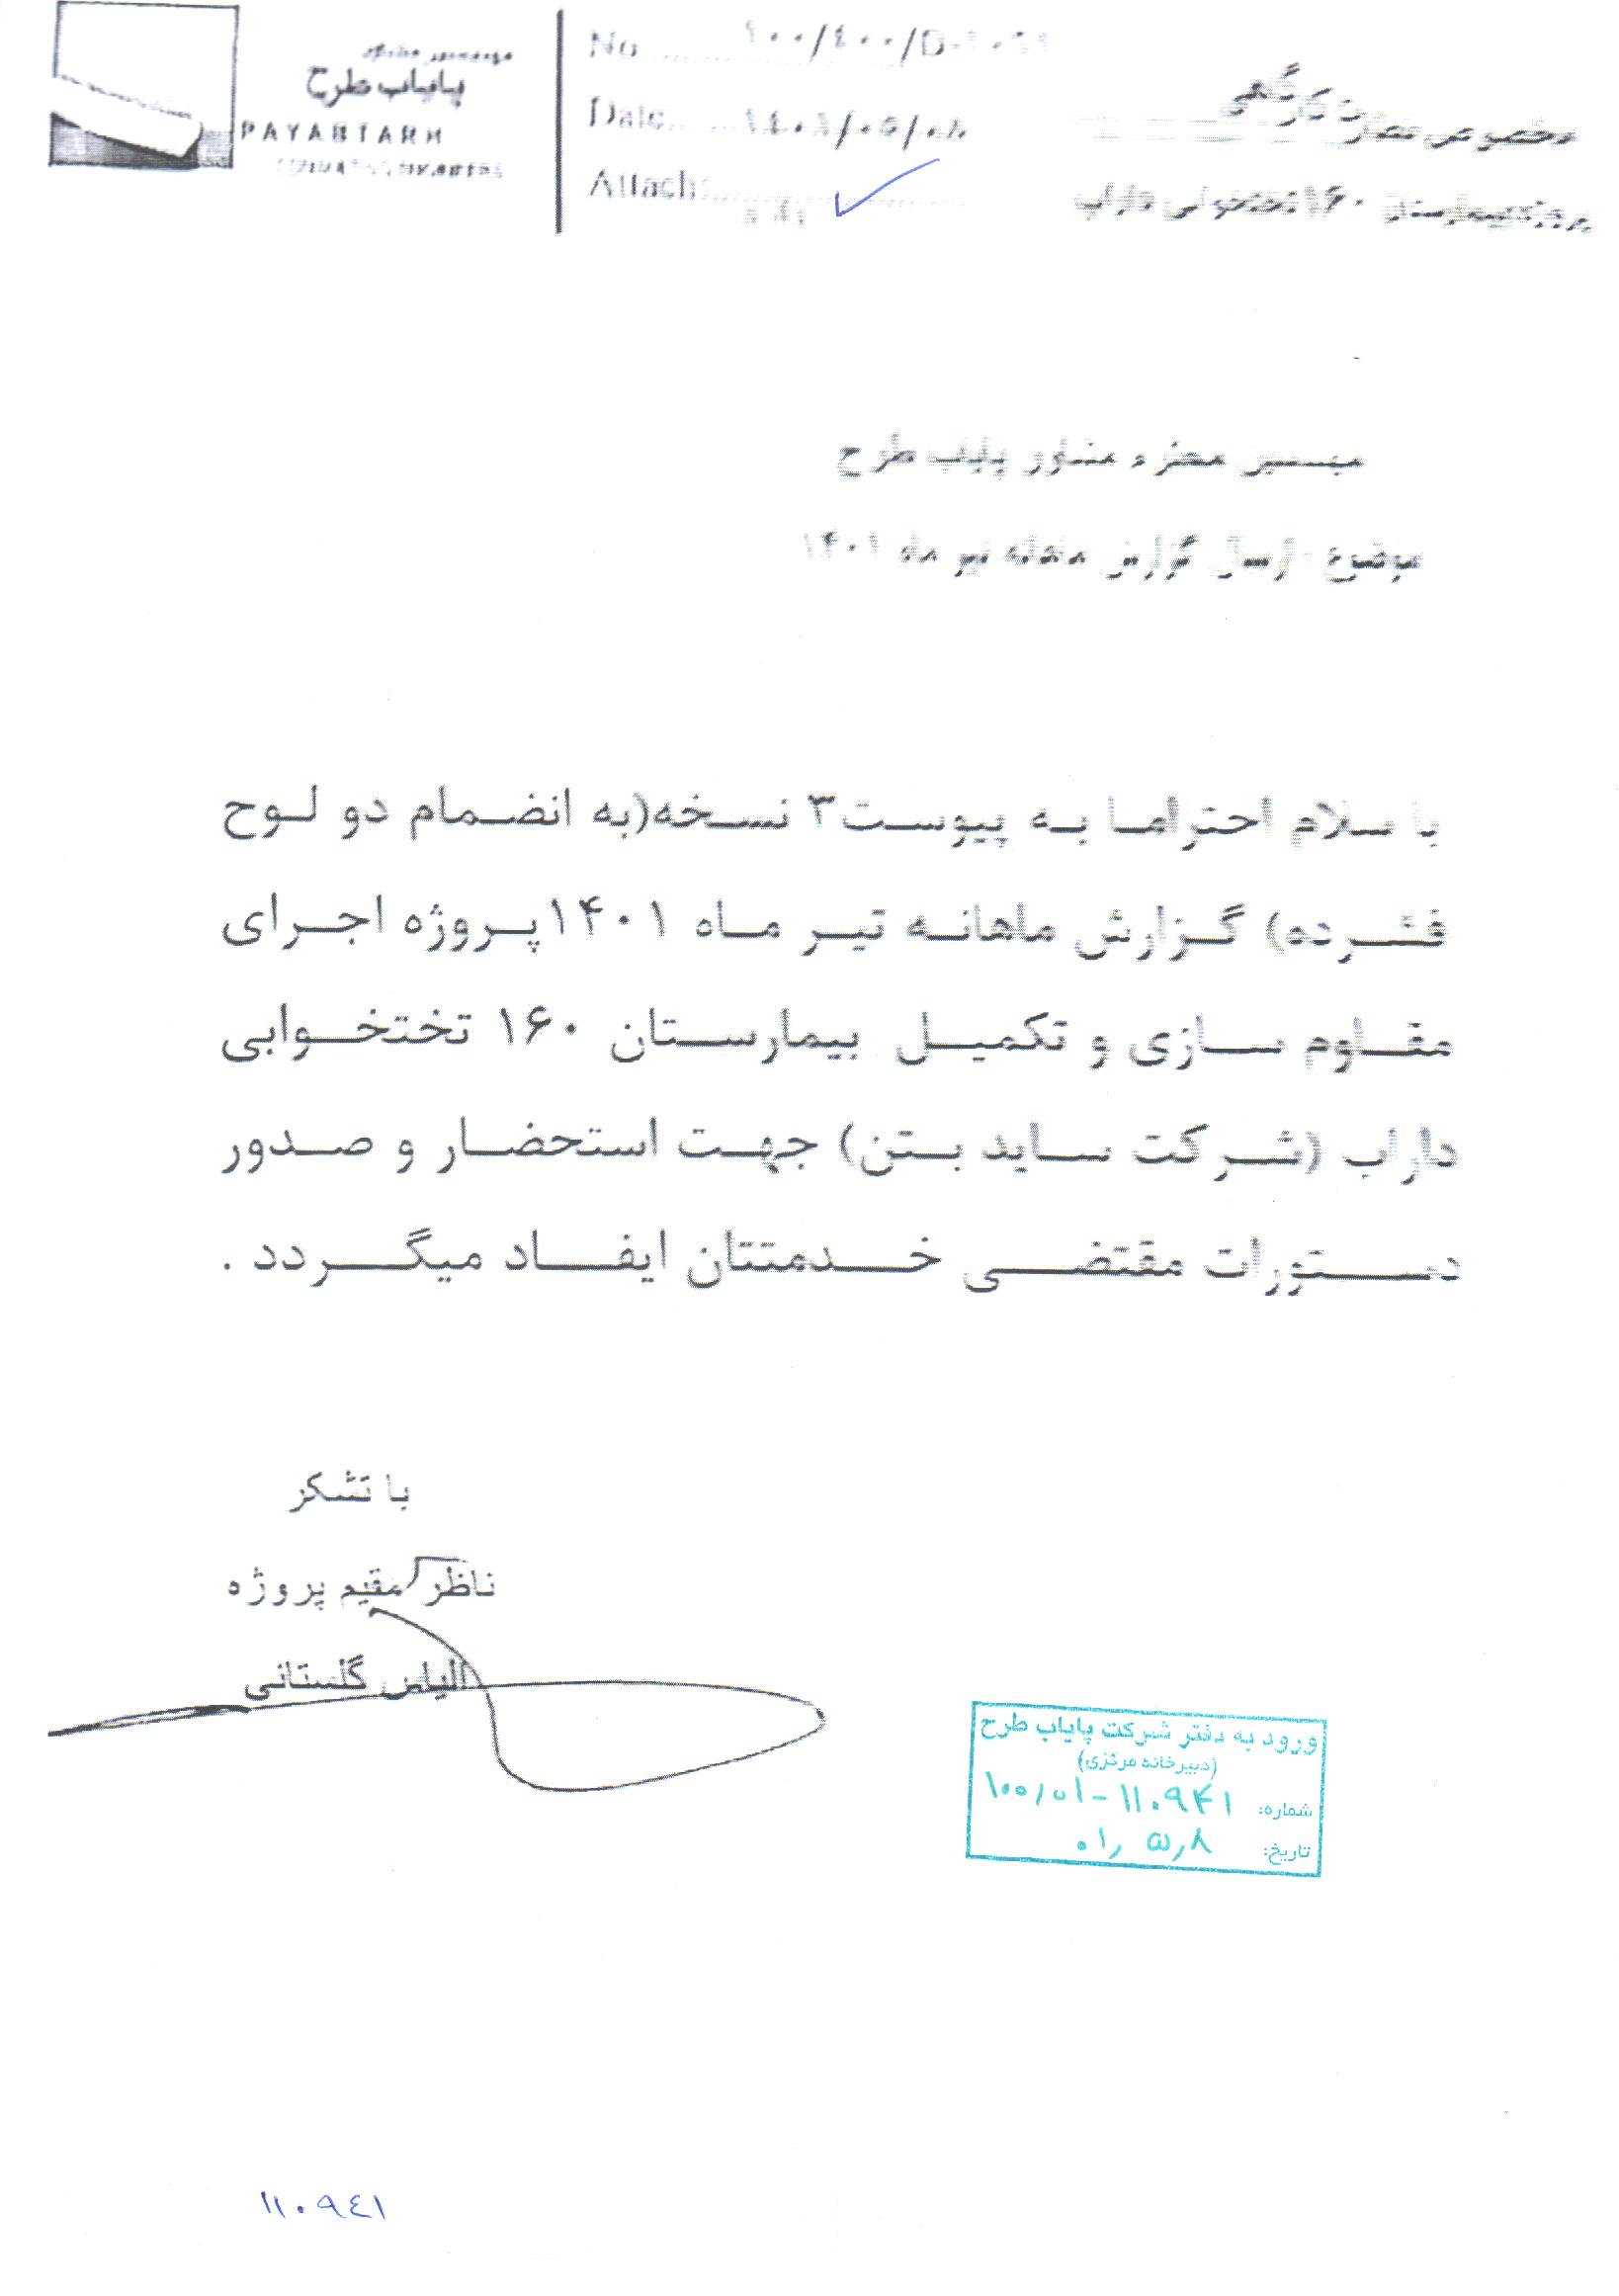 پایاب طرح
PAYABTARH
No
Date ۱۴۰۱/۰۵/۰۸
Attach
پروژه بیمارستان ۱۶۰ تختخوابی داراب
مهندسین محترم مشاور پایاب طرح
موضوع : ارسال گزارش ماهانه تیر ماه ۱۴۰۱
با سلام احتراما به پیوست۳ نسخه(به انضمام دو لوح
فشرده) گزارش ماهانه تیر ماه ۱۴۰۱پروژه اجرای
مقاوم سازی و تکمیل بیمارستان ۱۶۰ تختخوابی
داراب (شرکت ساید بتن) جهت استحضار و صدور
دستورات مقتضی خدمتتان ایفاد میگردد .
با تشکر
ناظر مقیم پروژه
الیاس گلستانی
ورود به دفتر شرکت پایاب طرح
(دبیرخانه مرکزی)
شماره: ۱۰۰/۰۱-۱۱۰۹۴۱
تاریخ: ۰۱/۵/۸
۱۱۰۹۴۱